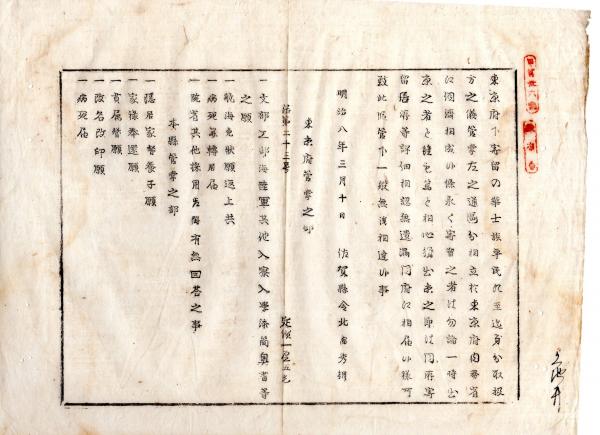 東京府下寄留の華士族平民ニ至迄身分取扱
方之儀管掌左之通區分相立於東京府内務省
江伺濟相成候條永く寄留之者は勿論一時出
京之者と雖も篤と相心得出京之節は同府寄
留届等詳細相認無遺漏同府江相届候様可
致此旨管下一般無洩相達候事
明治八年三月十日 佐賀縣令北島秀朝
第二十三号 定價一厘五毛
東京府管掌之部
一文部工部海陸軍其他入寮入學
之願
一航海免状願返上共
一病死
一院省其他採用先故障有無回答之事
本縣管掌之部
一隠居家督養子願
一家禄奉還願
一貫属替願
一改名改印願
一病死届